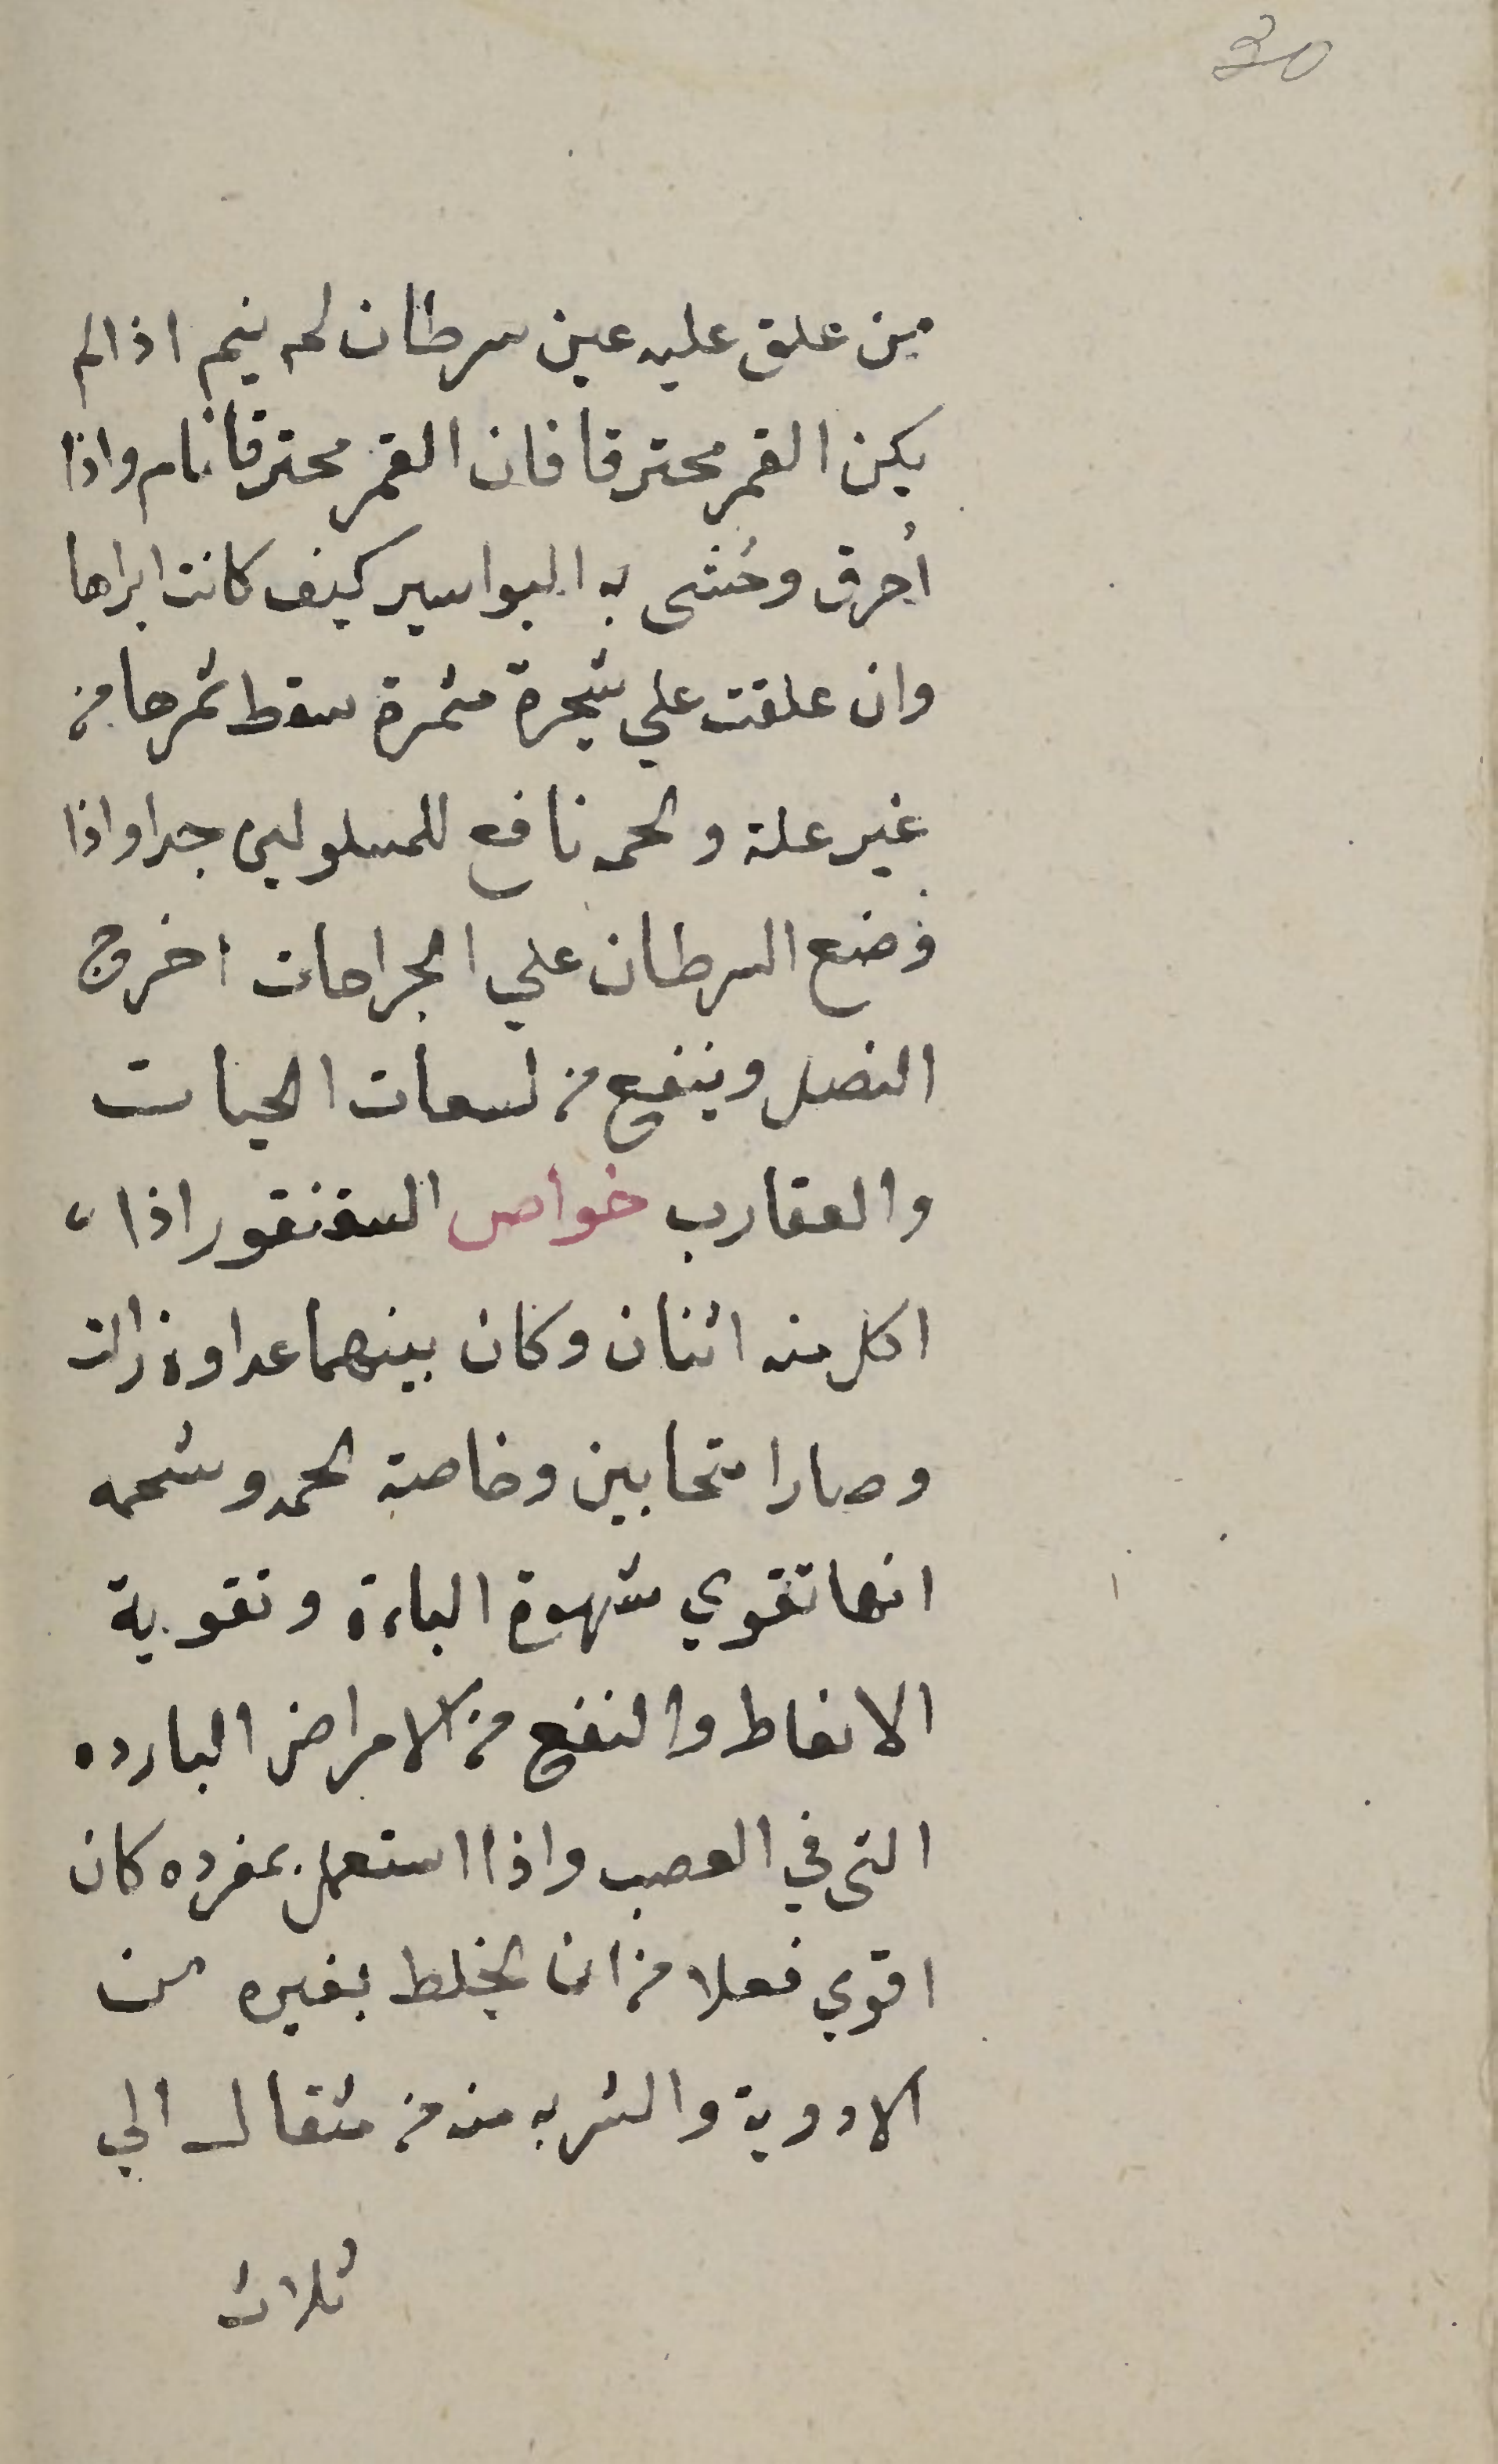 30
من علق عليه عين سرطان لم ينم اذا لم
يكن القمر محترقا فان القمر محترقا نام واذا
أحرق وحُشى به البواسير كيف كانت ابراها
وان علقت علي شجرة مثمرة سقط ثمرها من
غير علة ولحمه نافع للمسلولين جدا واذا
وضع السرطان علي الجراحات اخرج
النصل وينفع من لسعات الحيات
والعقارب خواص السقنقور اذا
اكل منه اثنان وكان بينهما عداوة زالت
وصارا متحابين وخاصة لحمه وشحمه
انها تقوي شهوة الباءة وتقوية
الانعاط والنفع من الامراض البارده
التي في العصب واذا استعمل بمفرده كان
اقوي فعلا من ان يخلط بغيره من
الادوية والشربه منه من مثقال الي
ثلاث